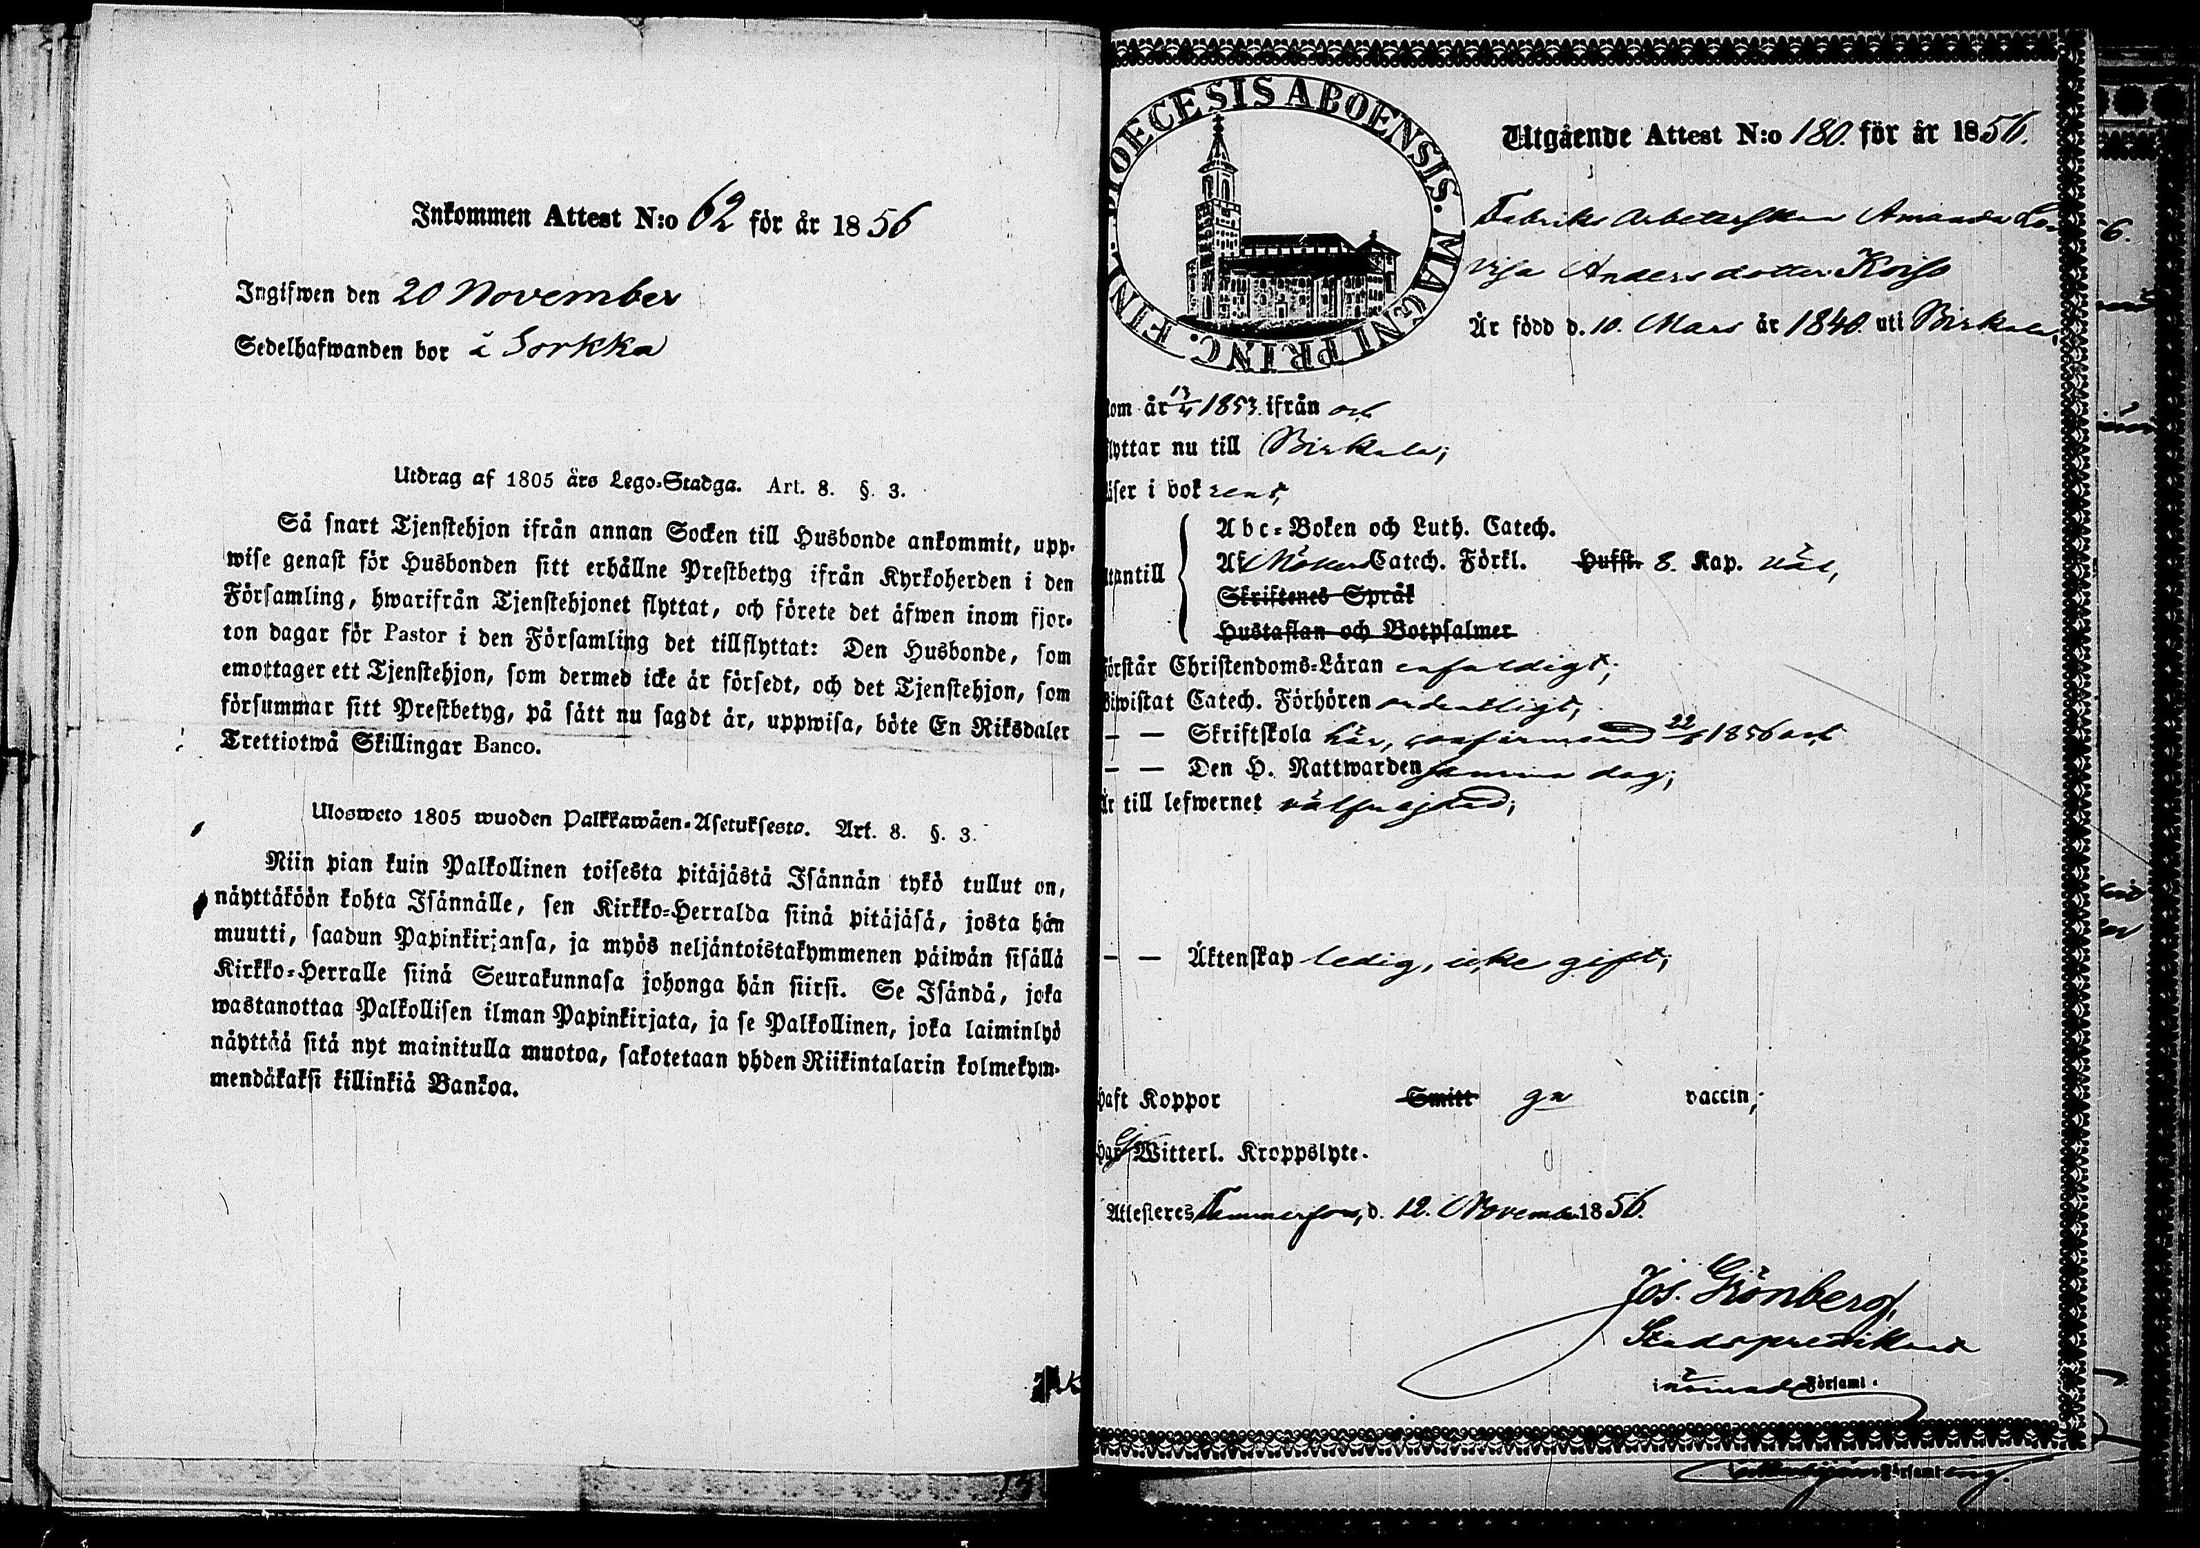 Inkommen Attest N:o 62 för år 1856
Ingifwen den 20 November
Sedelhafwanden bor å Sorkka
Utdrag af 1805 års Lego-Stadga. Art. 8. §. 3.
Så snart Tjenstehjon ifrån annan Socken till Husbonde ankommit, upp-
wise genast för Husbonden sitt erhållne Prestbetyg ifrån Kyrkoherden i den
Församling, hwarifrån Tjenstehjonet flyttat, och förete det äfwen inom fjor-
ton dagar för Pastor i den Församling det tillflyttat: Den Husbonde, som
emottager ett Tjenstehjon, som dermed icke är försedt, och det Tjenstehjon, som
försummar sitt Prestbetyg, på sätt nu sagdt är, uppwisa, böte En Riksdaler
Trettiotwå Skillingar Banco.
Ulosweto 1805 wuoden Palkkawäen-Asetuksesta. Art. 8. §. 3.
Niin pian kuin Palkollinen toisesta pitäjästä Isännän tykö tullut on,
näyttäköön kohta Isännälle, sen Kirkko-Herralda siinä pitäjäsä, josta hän
muutti, saadun Papinkirjansa, ja myös neljäntoistakymmenen päiwän sisällä
Kirkko-Herralle siinä Seurakunnasa johonga hän siirsi. Se Isändä, joka
wastanottaa Palkollisen ilman Papinkirjata, ja se Palkollinen, joka laiminlyö
näyttää sitä nyt mainitulla muotoa, sakotetaan yhden Riikintalarin kolmekym-
mendäkaksi killinkiä Bankoa.
DIOECESIS ABOENSIS. MAGNI PRINC. FINL.
Utgående Attest N:o 180. för år 1856.
Fabriks Arbeterskan Amanda Lo
visa Andersdotter Koiso
Är född d. 10. Mars år 1840. uti Birkala,
kom år 13/4 1853. ifrån och
flyttar nu till Birkala;
läser i bok rent,
utantill
Abc-Boken och Luth. Catech.
Af Möllers Catech. Förkl. Hufst. 8. Kap. väl,
Skriftenes Språk
Hustaflan och Botpsalmer
förstår Christendoms-Läran enfaldigt;
Biwistat Catech. Förhören ordentligt;
— — Skriftskola här, confirmerad 22/6 1856 och
— — Den H. Nattwarden samma dag;
är till lefwernet välfrejdad;
— — Äktenskap ledig, icke gift;
haft Koppor Smitt gn vaccin;
Har Ej Witterl. Kroppslyte.
Attesteres Tammerfors, d. 12. November 1856.
Jos. Grönberg,
Stadspredikant
i nämnde Församl.